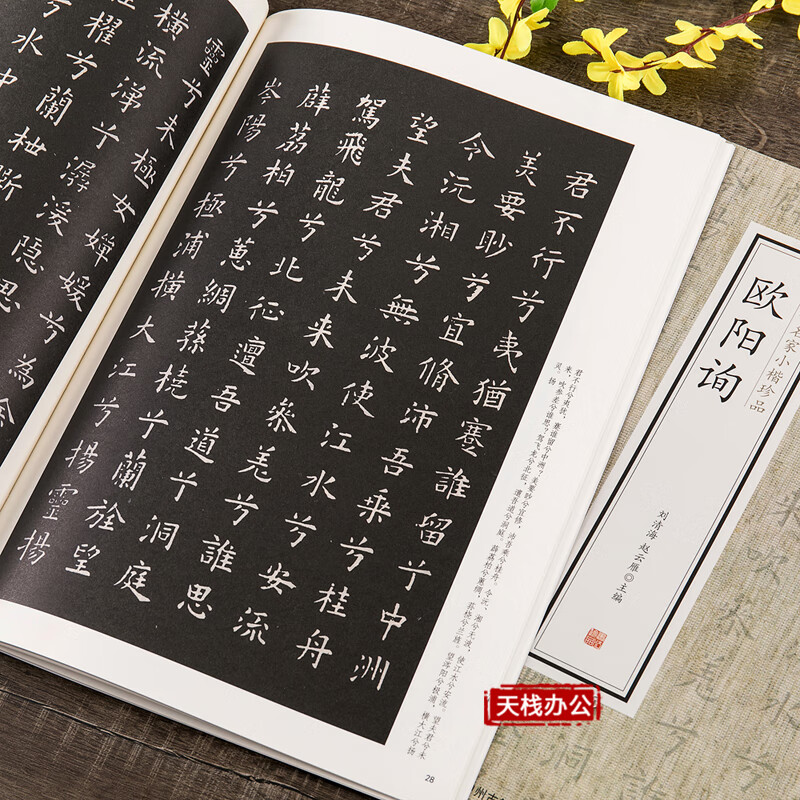 君不行兮夷猶蹇誰留兮中洲
美要眇兮宜脩沛吾乘兮桂舟
令沅湘兮無波使江水兮安流
望夫君兮未来吹参差兮誰思
駕飛龍兮北征邅吾道兮洞庭
薜荔柏兮蕙綢蓀橈兮蘭旌望
岑陽兮極浦橫大江兮揚靈揚
靈兮未極女嬋媛兮為余
橫流涕兮潺湲隱思
櫂兮蘭枻斵
水中
君不行兮夷犹，蹇谁留兮中洲？美要眇兮宜修，沛吾乘兮桂舟。令沅、湘兮无波，使江水兮安流。望夫君兮未
来，吹参差兮谁思？驾飞龙兮北征，邅吾道兮洞庭。薜荔柏兮蕙绸，荪桡兮兰旌。望涔阳兮极浦，横大江兮扬
灵。扬
28
名家小楷珍品
欧阳询
刘清海 赵云雁◎主编
天栈办公